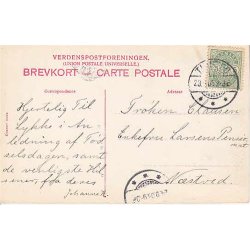 VERDENSPOSTFORENINGEN.
(UNION POSTALE UNIVERSELLE)
BREVKORT – CARTE POSTALE
Correspondance
Adresse
Hjertelig Til
lykke i An-
ledning af Fød
selsdagen, samt
de venligste Hil
sener fra deres
Johanne
Frøken Clausen
Enkefru Larsens Pension
Næstved